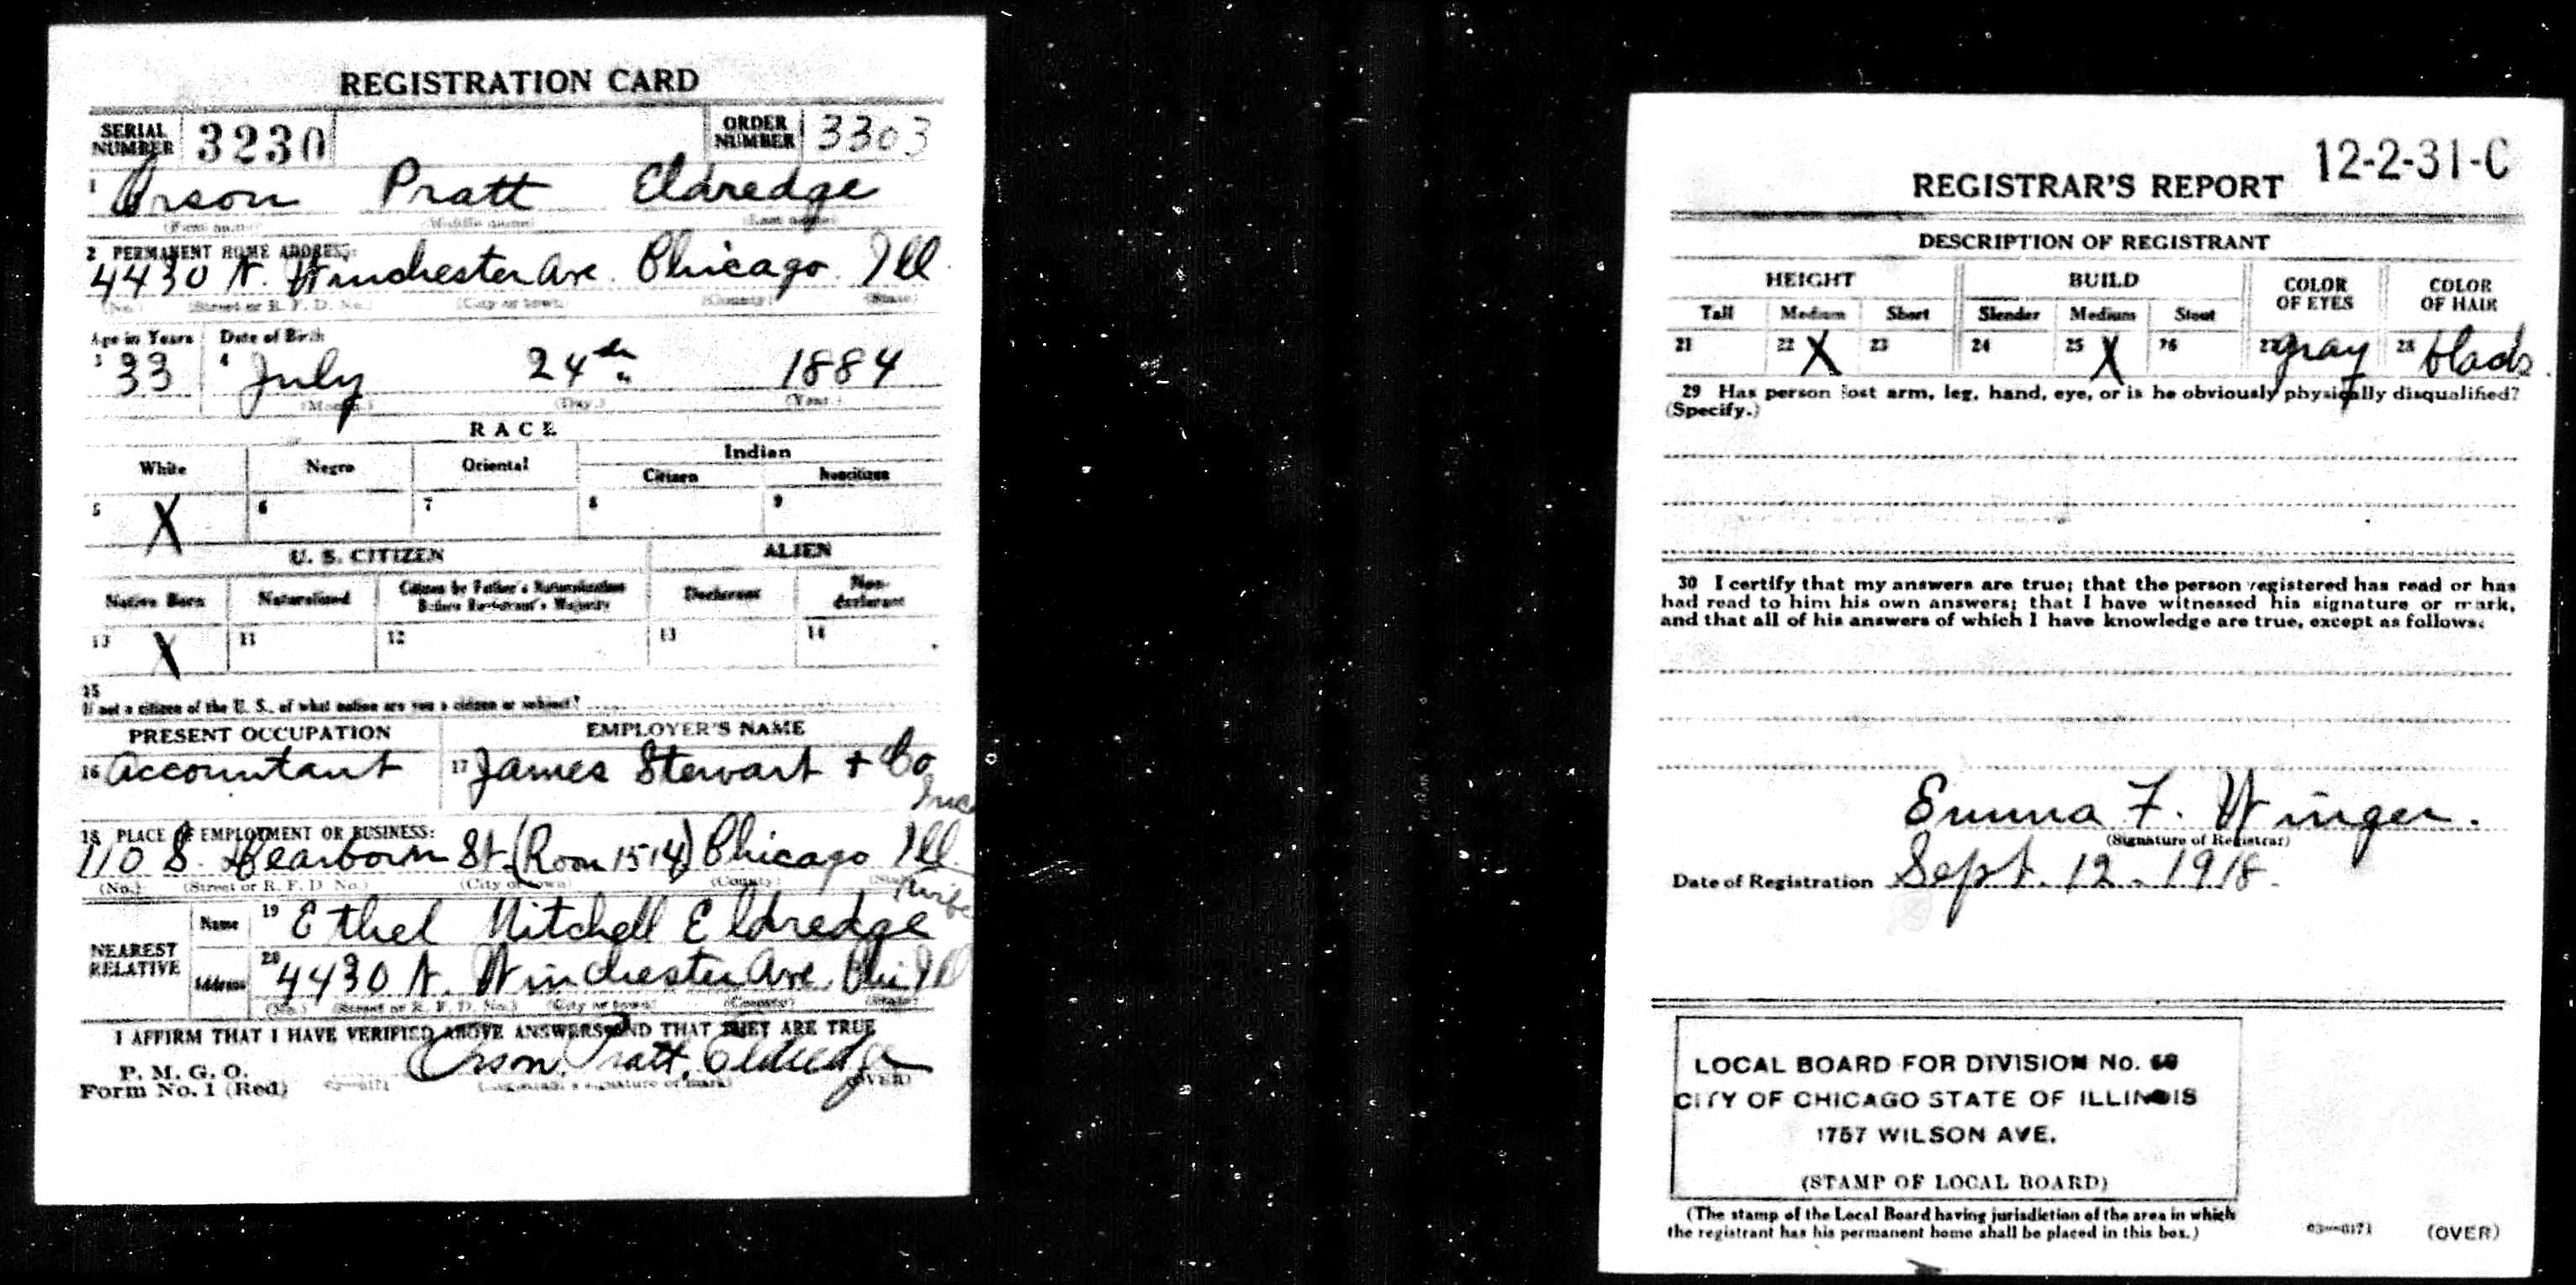 REGISTRATION CARD
SERIAL NUMBER 3230 ORDER NUMBER 3303
1 Orson Pratt Eldredge
(First name) (Middle name) (Last name)
2 PERMANENT HOME ADDRESS:
4430 N. Winchester Ave. Chicago. Ill
(No.) (Street or R. F. D. No.) (City or town) (County) (State)
Age in Years Date of Birth
3 33 4 July 24th 1884
(Month.) (Day.) (Year.)
RACE
White Negro Oriental Indian
Citizen Noncitizen
5 X 6 7 8 9
U. S. CITIZEN ALIEN
Native Born Naturalized Citizen by Father's Naturalization Before Registrant's Majority Declarant Non-declarant
X 11 12 13 14
15
If not a citizen of the U. S., of what nation are you a citizen or subject?
PRESENT OCCUPATION EMPLOYER'S NAME
16 Accountant 17 James Stewart + Co
Inc
18 PLACE OF EMPLOYMENT OR BUSINESS:
110 S. Dearborn St. (Room 1514) Chicago Ill.
(No.) (Street or R. F. D. No.) (City or town) (County) (State)
wife
NEAREST RELATIVE Name 19 Ethel Mitchell Eldredge
Address 20 4430 N. Winchester Ave. Chi Ill
(No.) (Street or R. F. D. No.) (City or town) (County) (State)
I AFFIRM THAT I HAVE VERIFIED ABOVE ANSWERS AND THAT THEY ARE TRUE
P. M. G. O.
Form No. 1 (Red) 03—6171 Orson Pratt Eldredge
(Registrant's signature or mark) (OVER)
12-2-31-C
REGISTRAR'S REPORT
DESCRIPTION OF REGISTRANT
HEIGHT BUILD COLOR OF EYES COLOR OF HAIR
Tall Medium Short Slender Medium Stout
21 22 X 23 24 25 X 26 27 gray 28 black
29 Has person lost arm, leg, hand, eye, or is he obviously physically disqualified?
(Specify.)
30 I certify that my answers are true; that the person registered has read or has
had read to him his own answers; that I have witnessed his signature or mark,
and that all of his answers of which I have knowledge are true, except as follows:
Emma F. Winger.
(Signature of Registrar)
Date of Registration Sept. 12. 1918.
LOCAL BOARD FOR DIVISION No.
CITY OF CHICAGO STATE OF ILLINOIS
1757 WILSON AVE.
(STAMP OF LOCAL BOARD)
(The stamp of the Local Board having jurisdiction of the area in which
the registrant has his permanent home shall be placed in this box.)
03—6171 (OVER)